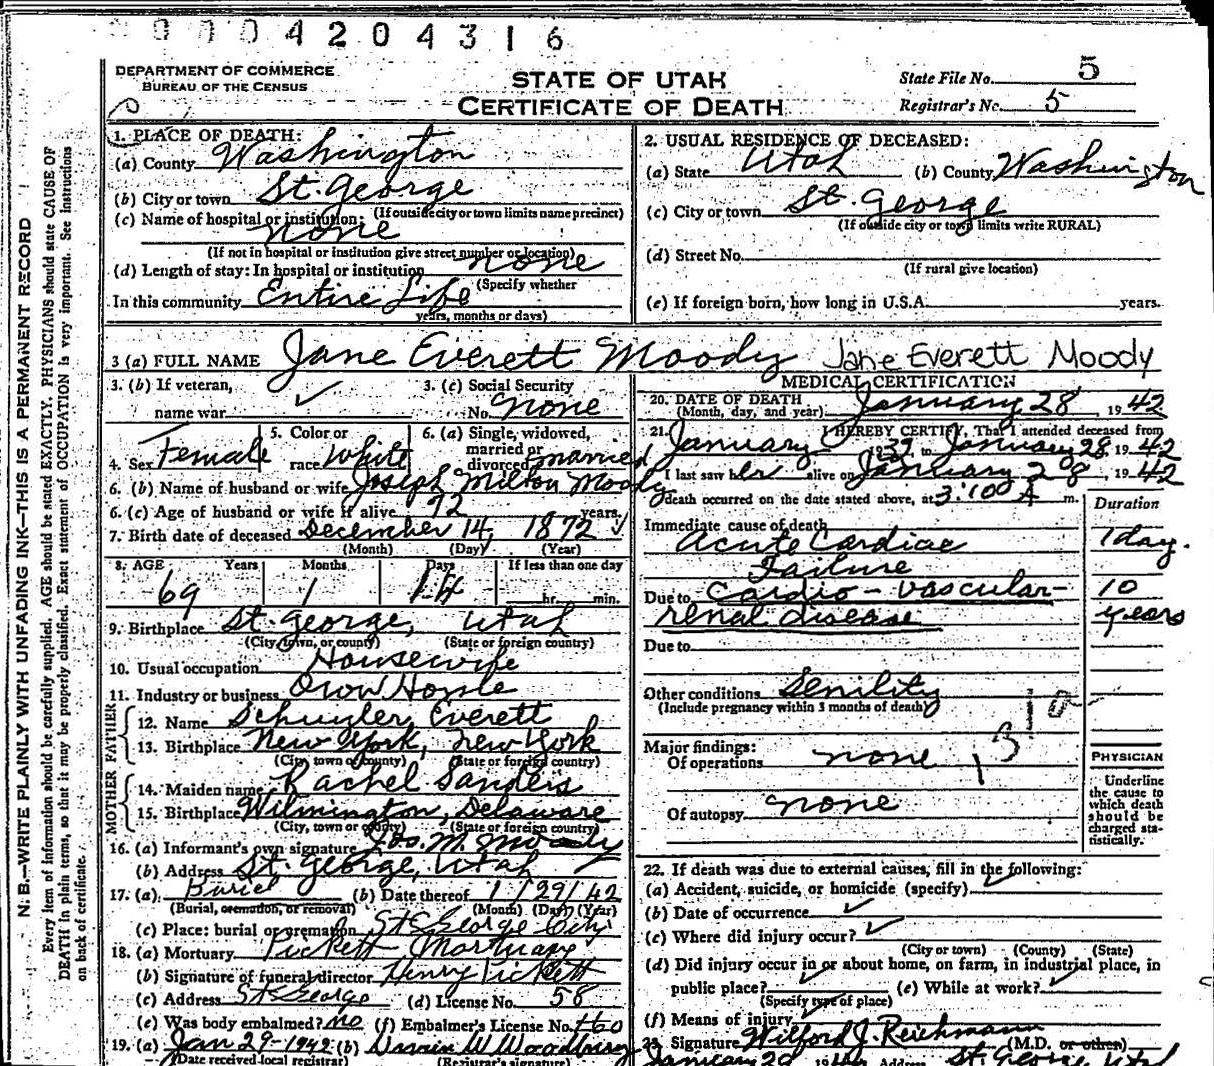 0004204316
DEPARTMENT OF COMMERCE
BUREAU OF THE CENSUS
STATE OF UTAH
CERTIFICATE OF DEATH
State File No. 5
Registrar's No. 5
1. PLACE OF DEATH:
(a) County Washington
(b) City or town St. George
(If outside city or town limits name precinct)
(c) Name of hospital or institution:
none
(If not in hospital or institution give street number or location)
(d) Length of stay: In hospital or institution none
(Specify whether
In this community Entire Life
years, months or days)
2. USUAL RESIDENCE OF DECEASED:
(a) State Utah (b) County Washington
(c) City or town St. George
(If outside city or town limits write RURAL)
(d) Street No.
(If rural give location)
(e) If foreign born, how long in U.S.A. years.
3 (a) FULL NAME Jane Everett Moody Jane Everett Moody
3. (b) If veteran,
name war ✓
3. (c) Social Security
No. none
4. Sex Female
5. Color or
race White
6. (a) Single, widowed,
married or
divorced married
6. (b) Name of husband or wife Joseph Milton Moody
6. (c) Age of husband or wife if alive 72 years.
7. Birth date of deceased December 14, 1872 ✓
(Month) (Day) (Year)
8. AGE Years Months Days If less than one day
69 1 14 hr. min.
9. Birthplace St. George, Utah
(City, town, or county) (State or foreign country)
10. Usual occupation Housewife
11. Industry or business Own Home
FATHER
12. Name Schuyler Everett
13. Birthplace New York, New York
(City, town or county) (State or foreign country)
MOTHER
14. Maiden name Rachel Sanders
15. Birthplace Wilmington, Delaware
(City, town or county) (State or foreign country)
16. (a) Informant's own signature Jos. M. Moody
(b) Address St. George, Utah
17. (a) Burial (b) Date thereof 1/29/42
(Burial, cremation, or removal) (Month) (Day) (Year)
(c) Place: burial or cremation St George City
18. (a) Mortuary Pickett Mortuary
(b) Signature of funeral director Henry Pickett
(c) Address St George (d) License No. 58
(e) Was body embalmed? No (f) Embalmer's License No. 460
19. (a) Jan 29-1942 (b) W. Woodbury
(Date received local registrar) (Registrar's signature)
MEDICAL CERTIFICATION
20. DATE OF DEATH
(Month, day, and year) January 28, 1942
21. I HEREBY CERTIFY, That I attended deceased from
January 1939, to January 28, 1942
I last saw her alive on January 28, 1942
death occurred on the date stated above, at 3:100 A m.
Duration
Immediate cause of death
Acute Cardiac 1 day.
Failure
Due to Cardio-vascular- 10
renal disease years
Due to
Other conditions Senility
(Include pregnancy within 3 months of death)
Major findings:
Of operations none
Of autopsy none
PHYSICIAN
Underline
the cause to
which death
should be
charged sta-
tistically.
22. If death was due to external causes, fill in the following:
(a) Accident, suicide, or homicide (specify) ✓
(b) Date of occurrence ✓
(c) Where did injury occur? ✓
(City or town) (County) (State)
(d) Did injury occur in or about home, on farm, in industrial place, in
public place? ✓ (e) While at work? ✓
(Specify type of place)
(f) Means of injury ✓
23. Signature Wilford J. Reichmann (M.D. or other)
January 1942 Address St. George Utah
N. B.—WRITE PLAINLY WITH UNFADING INK—THIS IS A PERMANENT RECORD
Every item of information should be carefully supplied. AGE should be stated EXACTLY. PHYSICIANS should state CAUSE OF
DEATH in plain terms, so that it may be properly classified. Exact statement of OCCUPATION is very important. See instructions
on back of certificate.